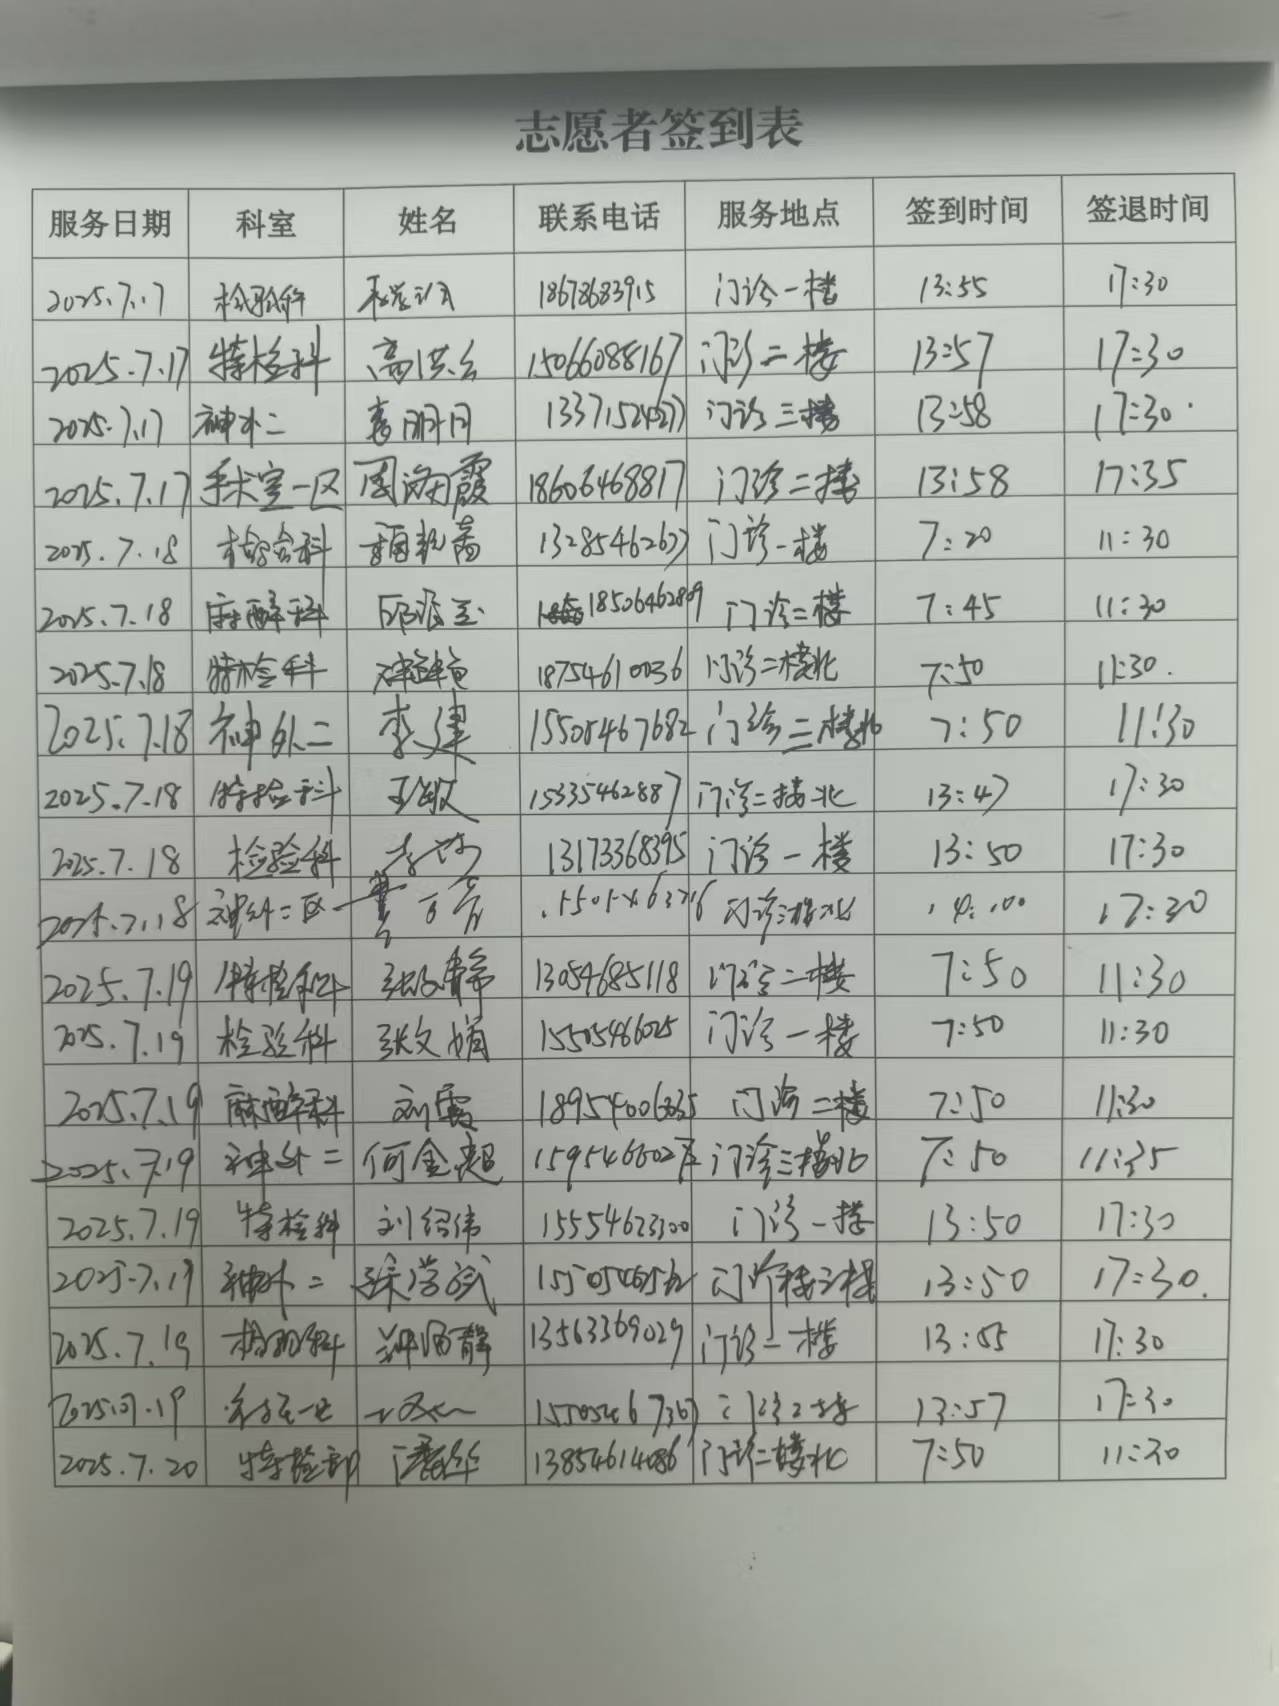 志愿者签到表
服务日期 科室 姓名 联系电话 服务地点 签到时间 签退时间
2025.7.17 检验科 18678683915 门诊一楼 13:55 17:30
2025.7.17 特检科 高洪云 15066088167 门诊二楼 13:57 17:30
2025.7.17 神外二 袁明月 13371524277 门诊三楼 13:58 17:30
2025.7.17 手术室一区 周海霞 18606468817 门诊二楼 13:58 17:35
2025.7.18 检验科 13285462677 门诊一楼 7:20 11:30
2025.7.18 麻醉科 18506462809 门诊二楼 7:45 11:30
2025.7.18 特检科 18754610036 门诊二楼北 7:50 11:30
2025.7.18 神外二 李建 15505467682 门诊三楼北 7:50 11:30
2025.7.18 特检科 王敏 15335462887 门诊二楼北 13:47 17:30
2025.7.18 检验科 13173368395 门诊一楼 13:50 17:30
2025.7.18 神外二区 门诊三楼北 14:00 17:30
2025.7.19 特检科 张文静 13054685118 门诊二楼 7:50 11:30
2025.7.19 检验科 张文娟 15505466025 门诊一楼 7:50 11:30
2025.7.19 麻醉科 刘霞 18954006335 门诊二楼 7:50 11:30
2025.7.19 神外二 何金超 门诊三楼北 7:50 11:35
2025.7.19 特检科 刘绍伟 15554623300 门诊一楼 13:50 17:30
2025.7.19 神外二 门诊楼三楼 13:50 17:30
2025.7.19 检验科 13563369029 门诊一楼 13:55 17:30
13:57 17:30
2025.7.20 特检部 13854614086 门诊二楼北 7:50 11:30